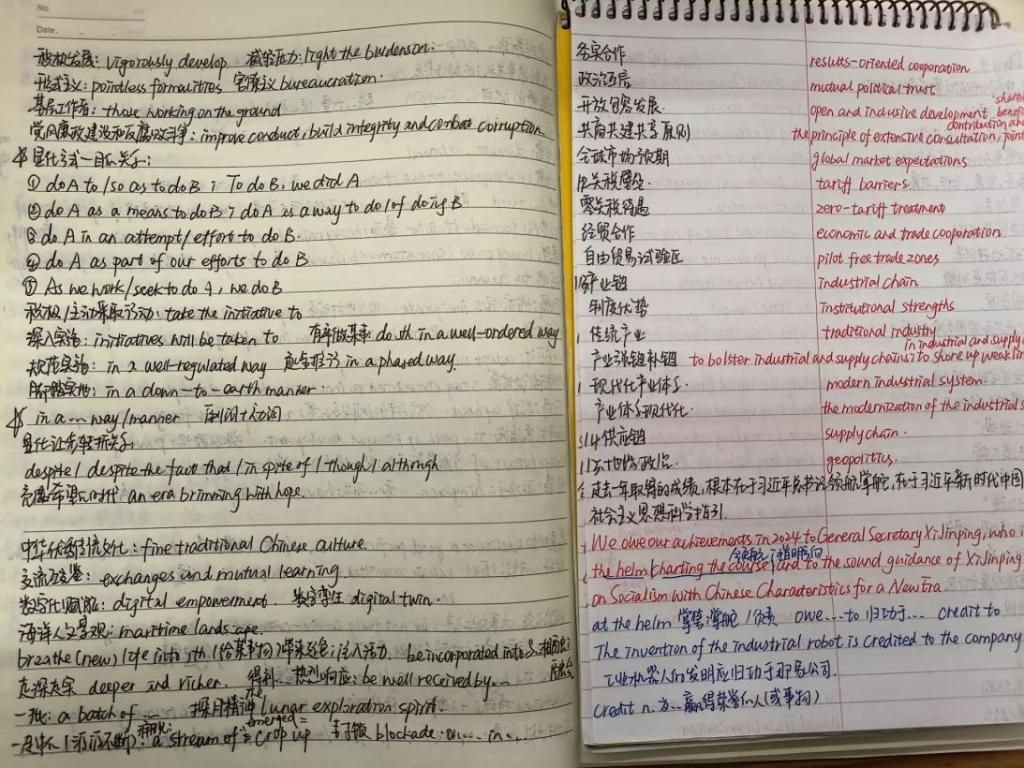 No.
Date.
积极发展: vigorously develop 减轻压力: light the burdenson.
形式主义: pointless formalities 官僚主义 bureaucration.
基层工作者: those working on the ground
党风廉政建设和反腐败斗争: improve conduct, build integrity and combat corruption
显化方式—目的关系:
① do A to / so as to do B ; To do B, we did A
② do A as a means to do B ; do A is a way to do / of doing B
③ do A in an attempt / effort to do B.
④ do A as part of our efforts to do B
⑤ As we work / seek to do A, we do B
积极/主动采取行动: take the initiative to
深入实施: initiatives will be taken to 有序做某事: do sth in a well-ordered way
规范实施: in a well-regulated way in a phased way.
脚踏实地: in a down-to-earth manner
in a ... way / manner 副词+动词
显化让步转折关系:
despite / despite the fact that / in spite of / though / although
充满希望的时代: an era brimming with hope.
中华优秀传统文化: fine traditional Chinese culture.
交流互鉴: exchanges and mutual learning
数字化赋能: digital empowerment. 数字孪生 digital twin.
海洋人文景观: maritime landscape.
breathe (new) life into sth (给某事物)带来生色; 注入活力. be incorporated into
走深走实 deeper and richer. 得到...热烈响应: be well received by...
一批: a batch of ... 探月精神 the lunar exploration spirit.
a stream of emerged = crop up 封锁 blockade on... in...
务实合作 results-oriented cooporation
政治互信 mutual political trust
开放包容发展. open and inclusive development
共商共建共享原则 the principle of extensive consultation, joint contribution and shared benefi
全球市场预期 global market expectations
关税壁垒. tariff barriers
零关税待遇 zero-tariff treatment
经贸合作 economic and trade cooporation
自由贸易试验区 pilot free trade zones
产业链 industrial chain
制度优势 Institutional strengths
传统产业 traditional industry
产业强链补链 to bolster industrial and supply chains; to shore up weak lin in industrial and supply
现代化产业体系. modern industrial system
产业体系现代化. the modernization of the industrial s
供应链 supply chain.
地缘政治. geopolitics.
过去一年取得的成绩, 根本在于习近平总书记领航掌舵, 在于习近平新时代中国
社会主义思想科学指引.
We owe our achievements in 2024 to General Secretary Xi Jinping, who i
领航; 指明方向
the helm charting the course, and to the sound guidance of Xi Jinping
on Socialism with Chinese Characteristics for a New Era.
at the helm 掌管; 掌舵 / 负责 owe ... to 归功于... credit to
The invention of the industrial robot is credited to the company
工业机器人的发明应归功于那家公司
credit n. 为...赢得荣誉的人(或事物)